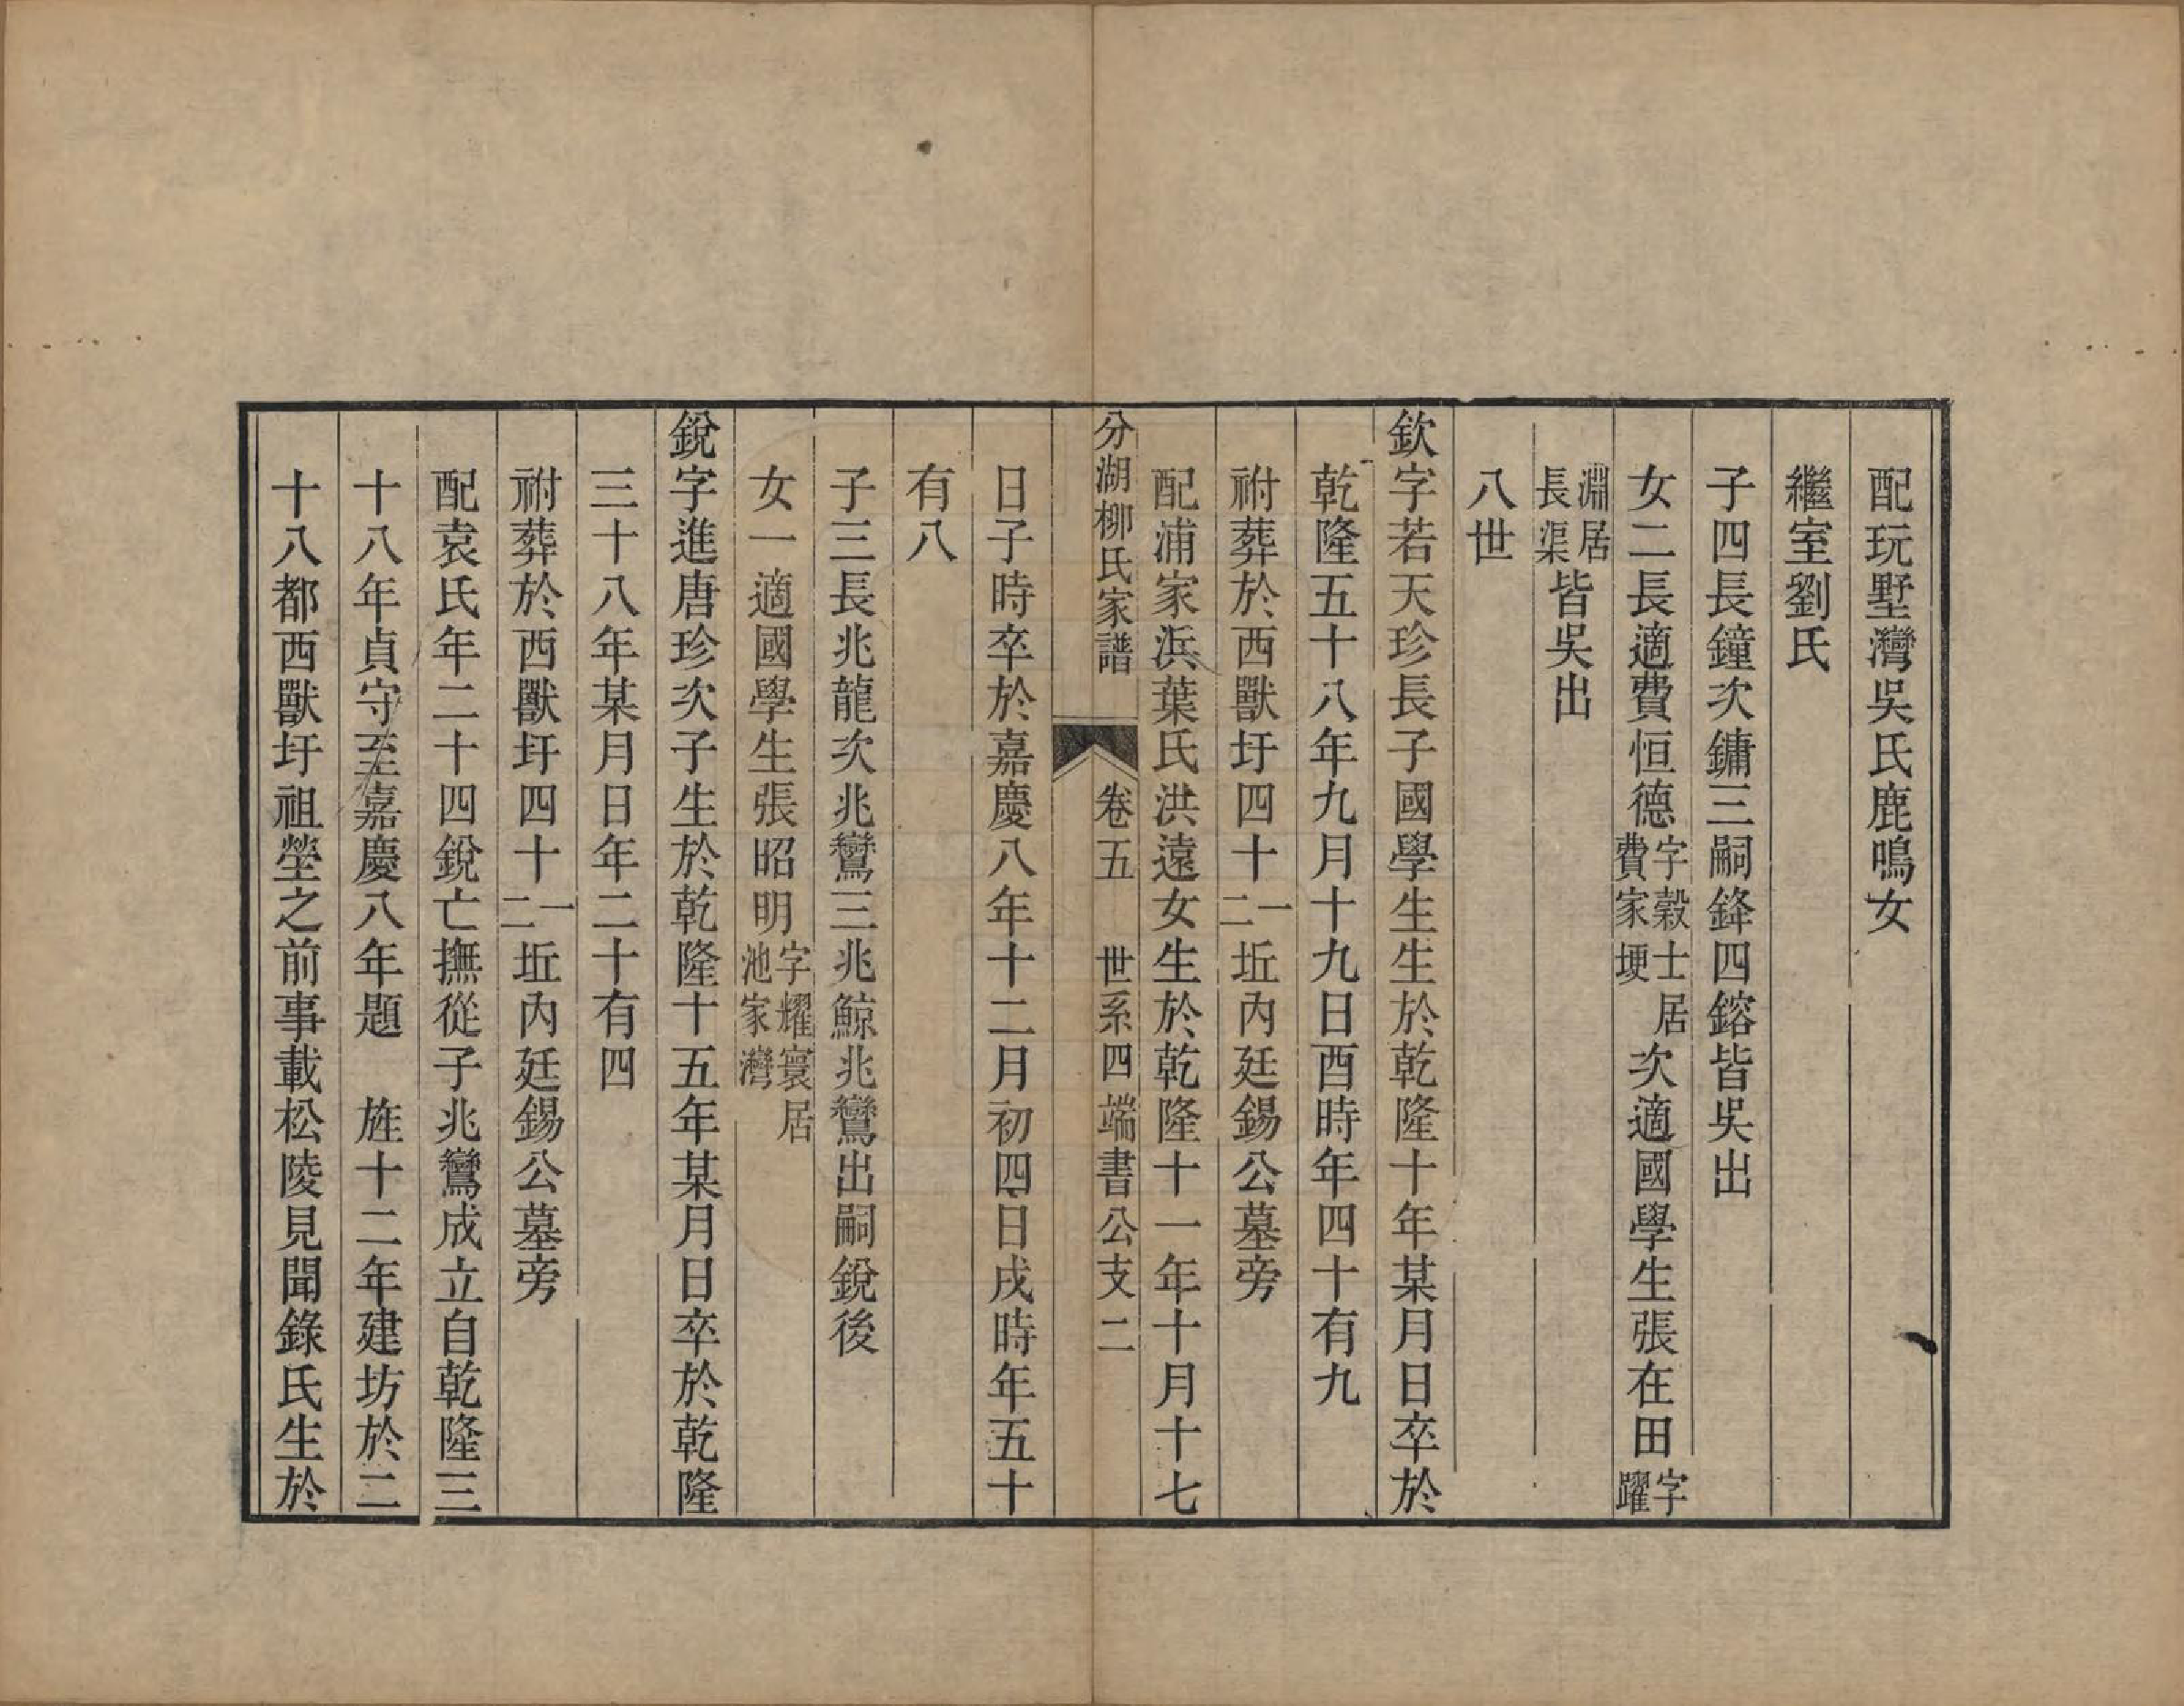 配玩墅灣吳氏鹿鳴女
繼室劉氏
子四長鐘次鏞三嗣鋒四鎔皆吳出
女二長適費恒德字穀士居費家埂次適國學生張在田字躍
淵居長渠皆吳出
八世
欽字若天珍長子國學生生於乾隆十年某月日卒於
乾隆五十八年九月十九日酉時年四十有九
祔葬於西獸圩四十一二坵內廷錫公墓旁
配浦家浜葉氏洪遠女生於乾隆十一年十月十七
分湖柳氏家譜 卷五 世系四端書公支二
日子時卒於嘉慶八年十二月初四日戌時年五十
有八
子三長兆龍次兆鸞三兆鯨兆鸞出嗣銳後
女一適國學生張昭明字耀寰居池家灣
銳字進唐珍次子生於乾隆十五年某月日卒於乾隆
三十八年某月日年二十有四
祔葬於西獸圩四十一二坵內廷錫公墓旁
配袁氏年二十四銳亡撫從子兆鸞成立自乾隆三
十八年貞守至嘉慶八年題 旌十二年建坊於二
十八都西獸圩祖塋之前事載松陵見聞錄氏生於